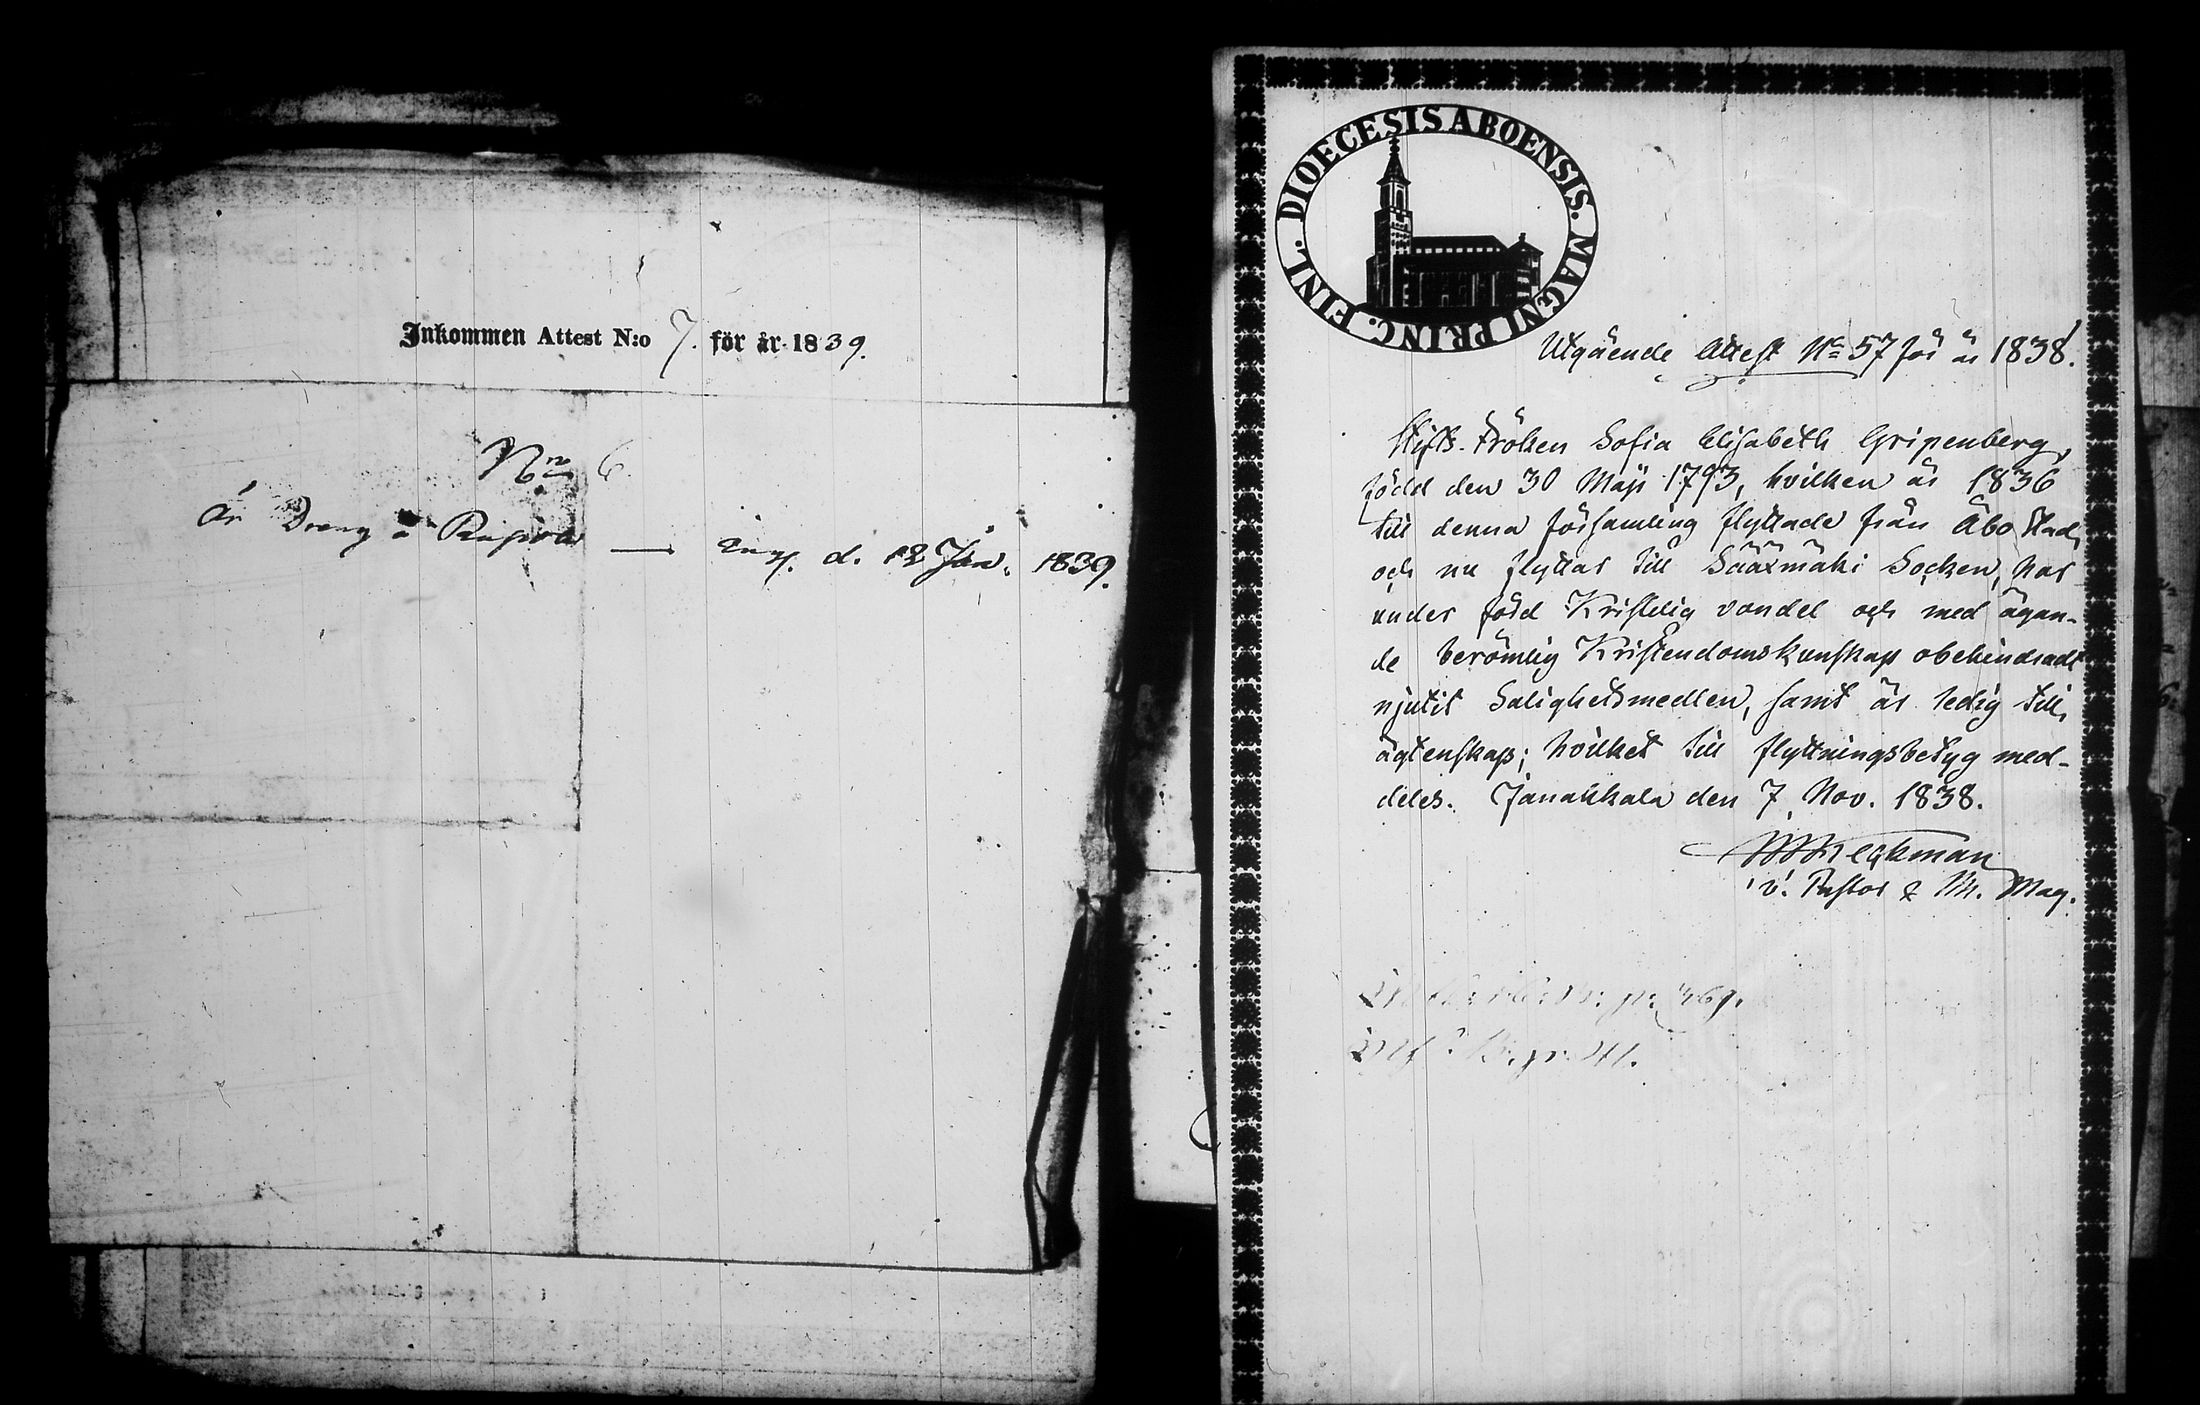 Inkommen Attest N:o 7. för år 1839.
Nro 6.
är Dreng å ——— d. 12 Jan. 1839.
DIOECESIS ABOENSIS. MAGNI PRINC. FINL.
Utgående Attest No 57 för år 1838.
Stifts-Fröken Sofia Elisabeth Gripenberg,
född den 30 Maji 1793, hvilken år 1836
till denna församling flyttade från Åbo Stad,
och nu flyttar till Sääxmäki Socken, har
under förd Kristelig vandel och med ägan-
de berömlig Kristendomskunskap obehindradt
njutit Salighetsmedlen, samt är ledig till
ägtenskap; hvilket till flyttningsbetyg med-
deles. Janakkala den 7 Nov. 1838.
v. Pastor & M. Mag.